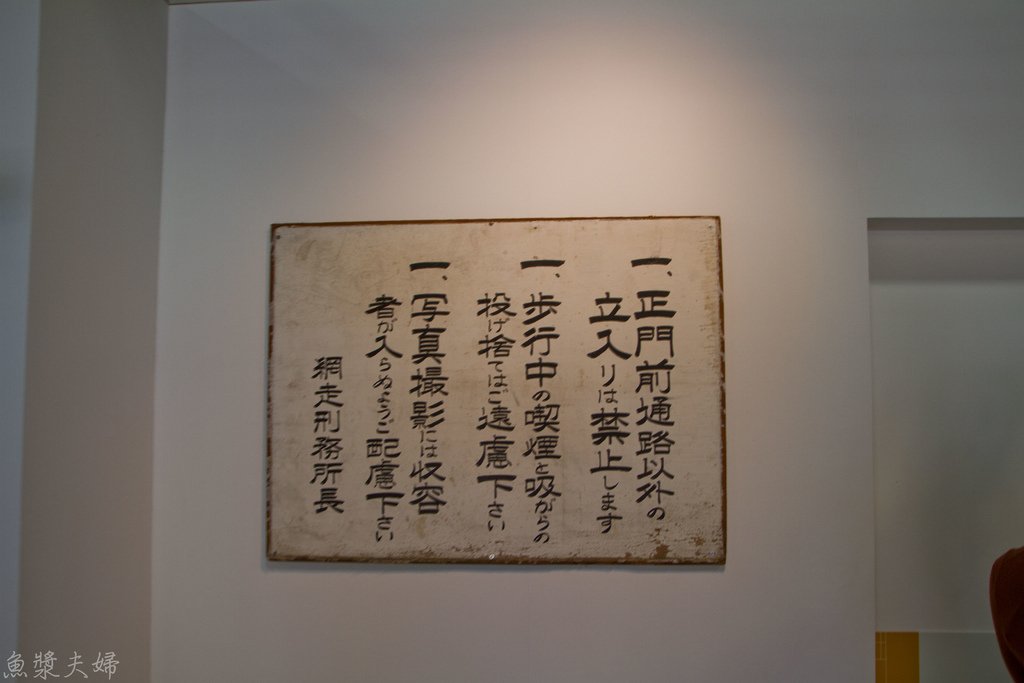 一、正門前通路以外の
立入りは禁止します
一、歩行中の喫煙と吸がらの
投げ捨てはご遠慮下さい
一、写真撮影には収容
者が入らぬようご配慮下さい
網走刑務所長
魚漿夫婦